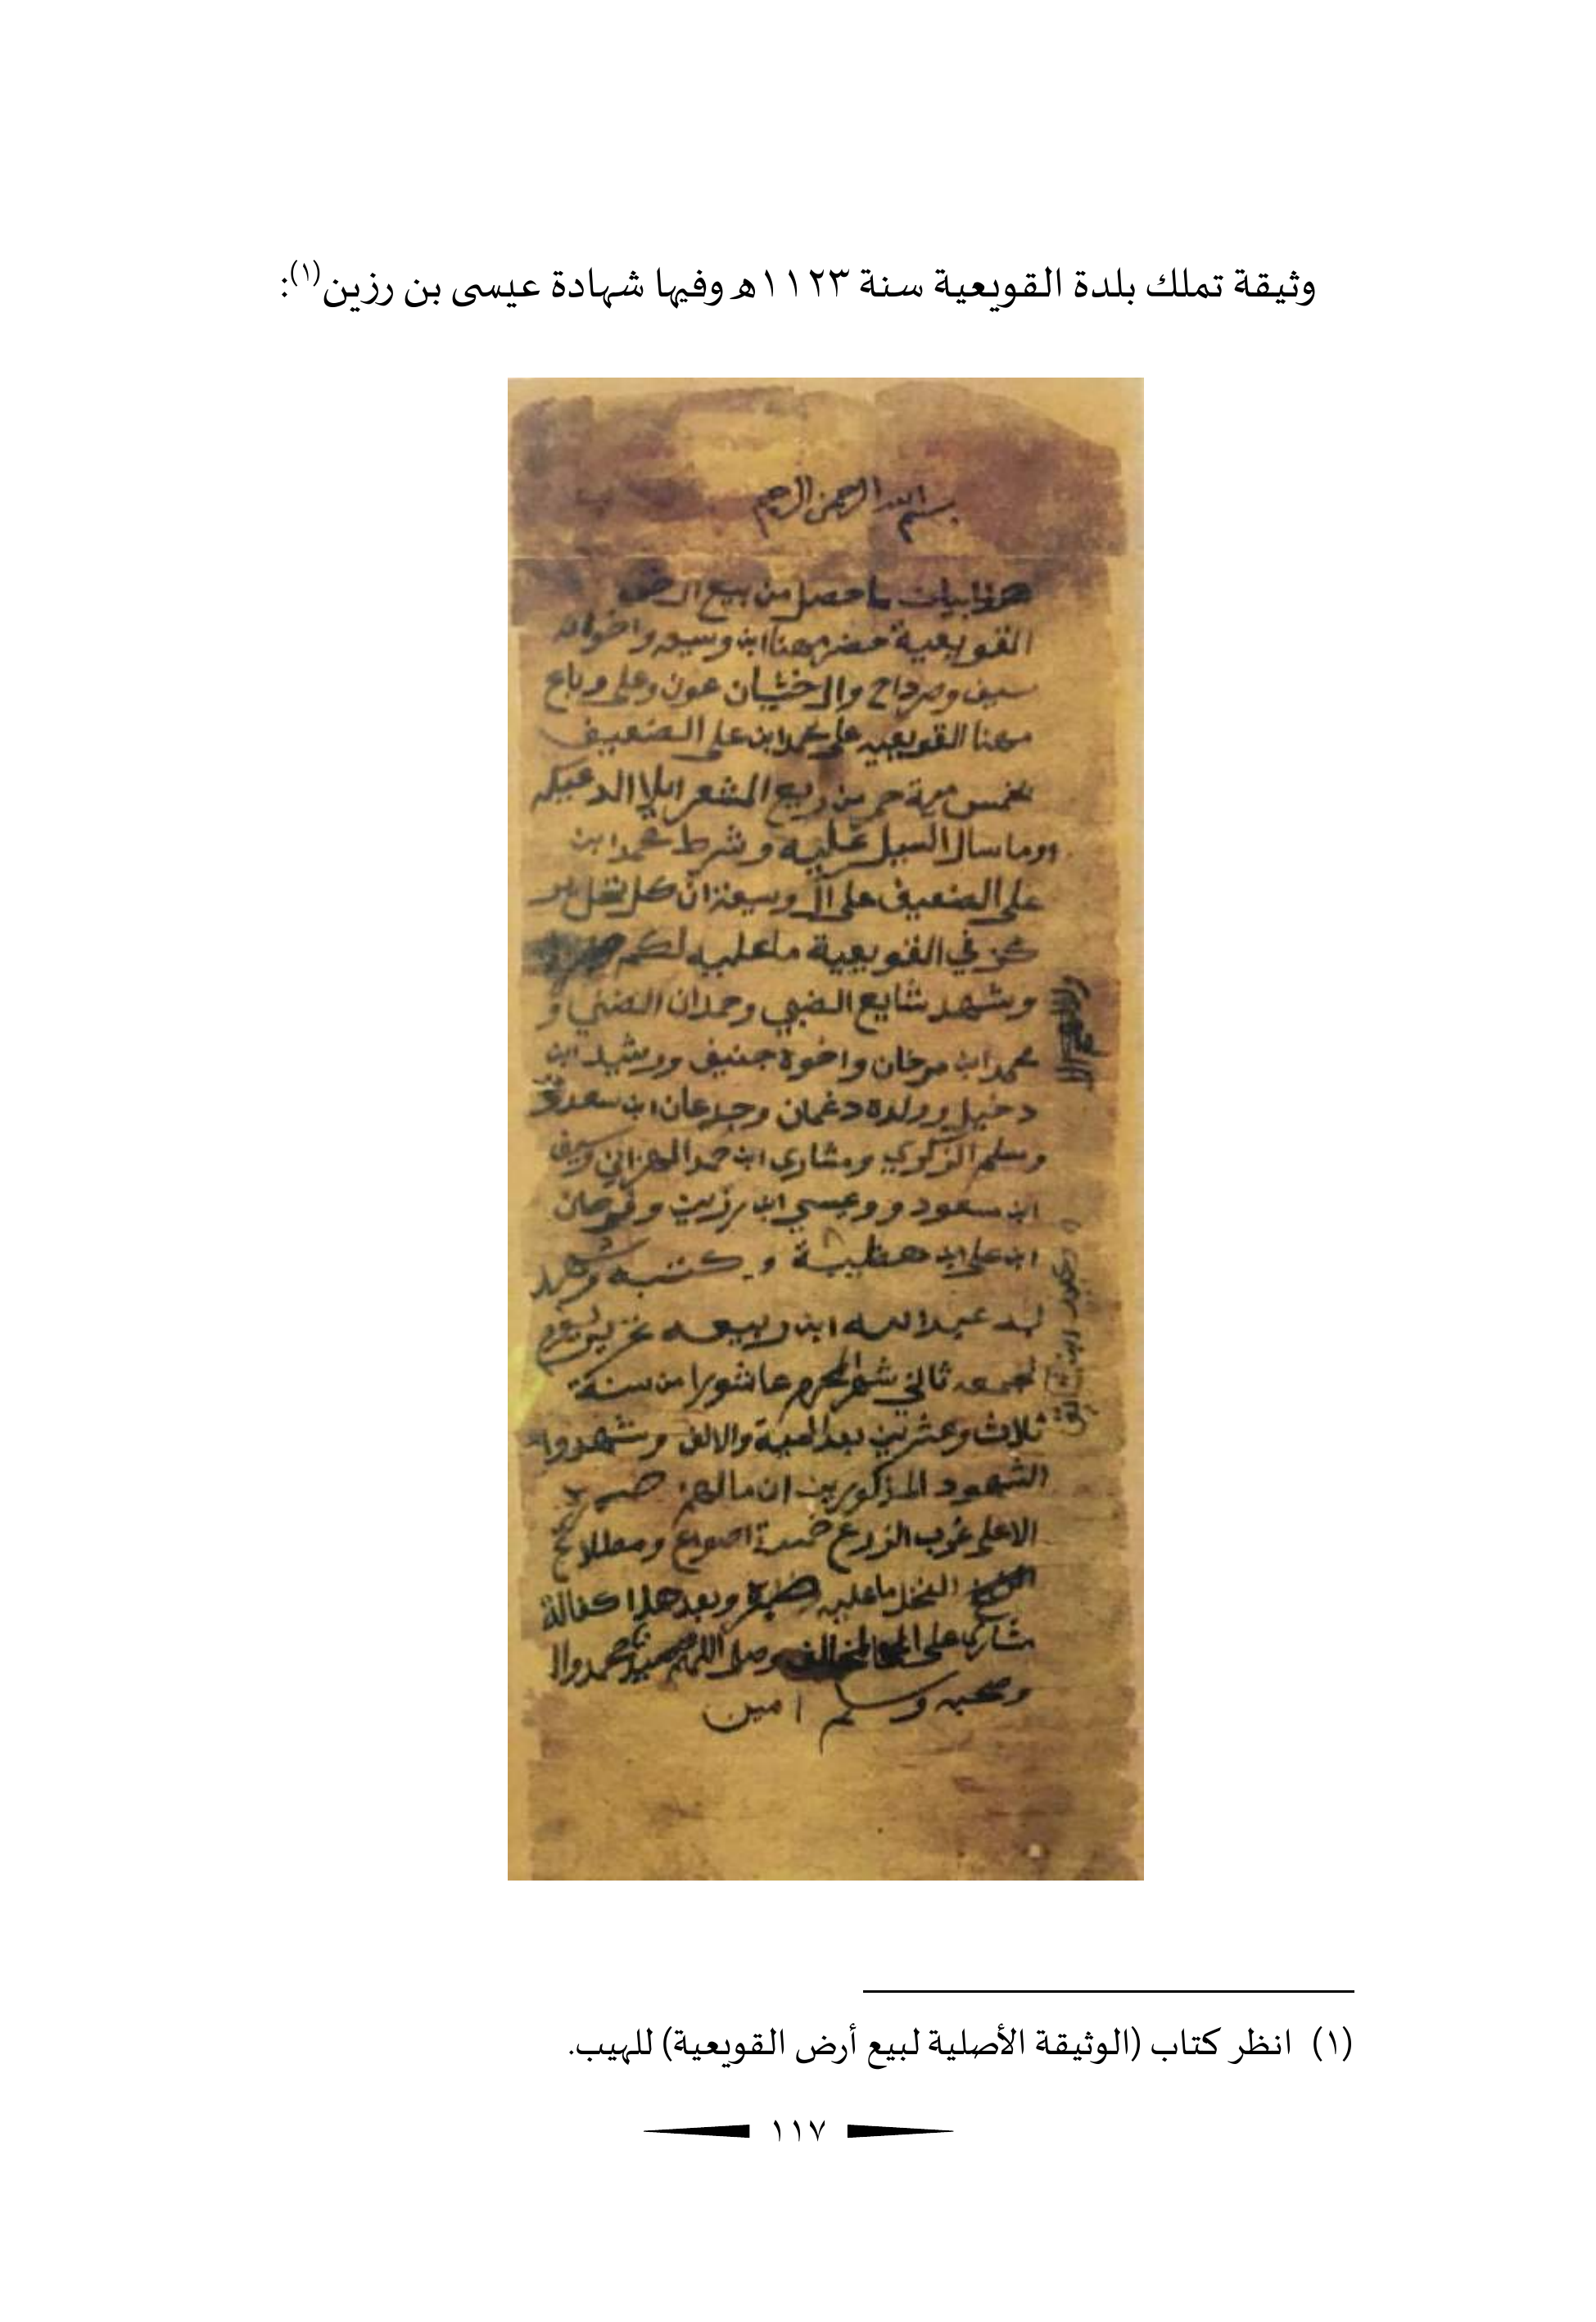 وثيقة تملك بلدة القويعية سنة ١١٢٣هـ وفيها شهادة عيسى بن رزين(١):
بسم الله الرحمن الرحيم
هذا بيان ما حصل من بيع
القويعية حضر مهنا ابن وسيعه واخوانه
سيف وصرداح والـ خثيان عون وعلي وباع
مهنا القويعيه على محمد ابن علي الضعيف
بخمس مية حمر من ريع المشعر ايلا الدعيكه
وما سال السيل عليه وشرط محمد ابن
علي الضعيف على آل وسيعة ان كل نخل
في القويعية ما عليه لكم
وشهد شايع الضبي وحمدان الضبي و
محمد ابن مرخان واخوه حنيف ورشيد ابن
دخيل وولده دغمان وجدعان ابن سعدون
وسلم الزكوي ومشاري ابن حمد الهزاني
ابن سعود و وعيسي ابن رزين وفوحان
ابن علي ابن هظيبة و كتبه وشهد
به عبدالله ابن ربيعه
لجمعه ثاني شهر المحرم عاشورا من سنة
ثلاث وعشرين بعد المية والالف وشهدوا
الشهود المذكورين ان ما لهم صبره
الا على غرب الزرع خمسة اصواع ومطلاع
النخل ما عليه وبعد هذا كفالة
مشاري على وصل اللهم محمد والـ
وصحبه وسلم امين
(١) انظر كتاب (الوثيقة الأصلية لبيع أرض القويعية) للهيب.
١١٧